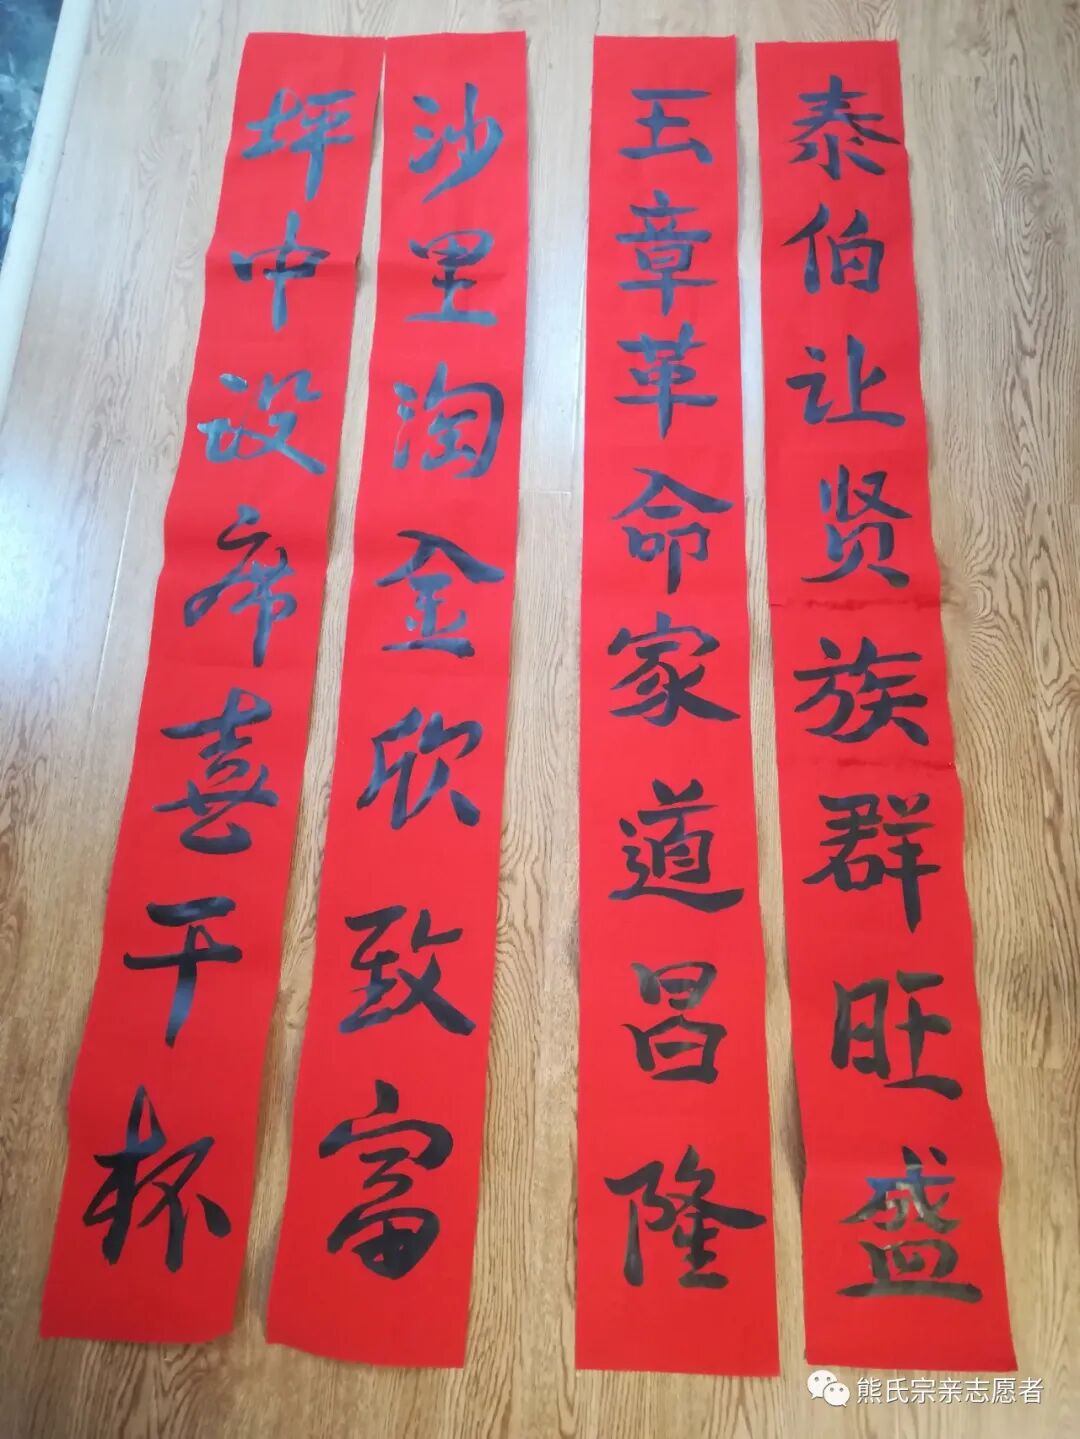 泰伯让贤族群旺盛
玉章革命家道昌隆
沙里淘金欣致富
坪中设席喜干杯
熊氏宗亲志愿者